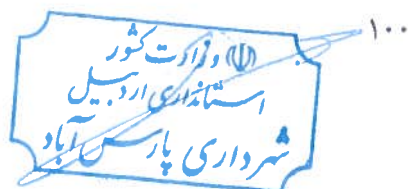 ۱۰۰
وزارت کشور
استانداری اردبیل
شهرداری پارس آباد